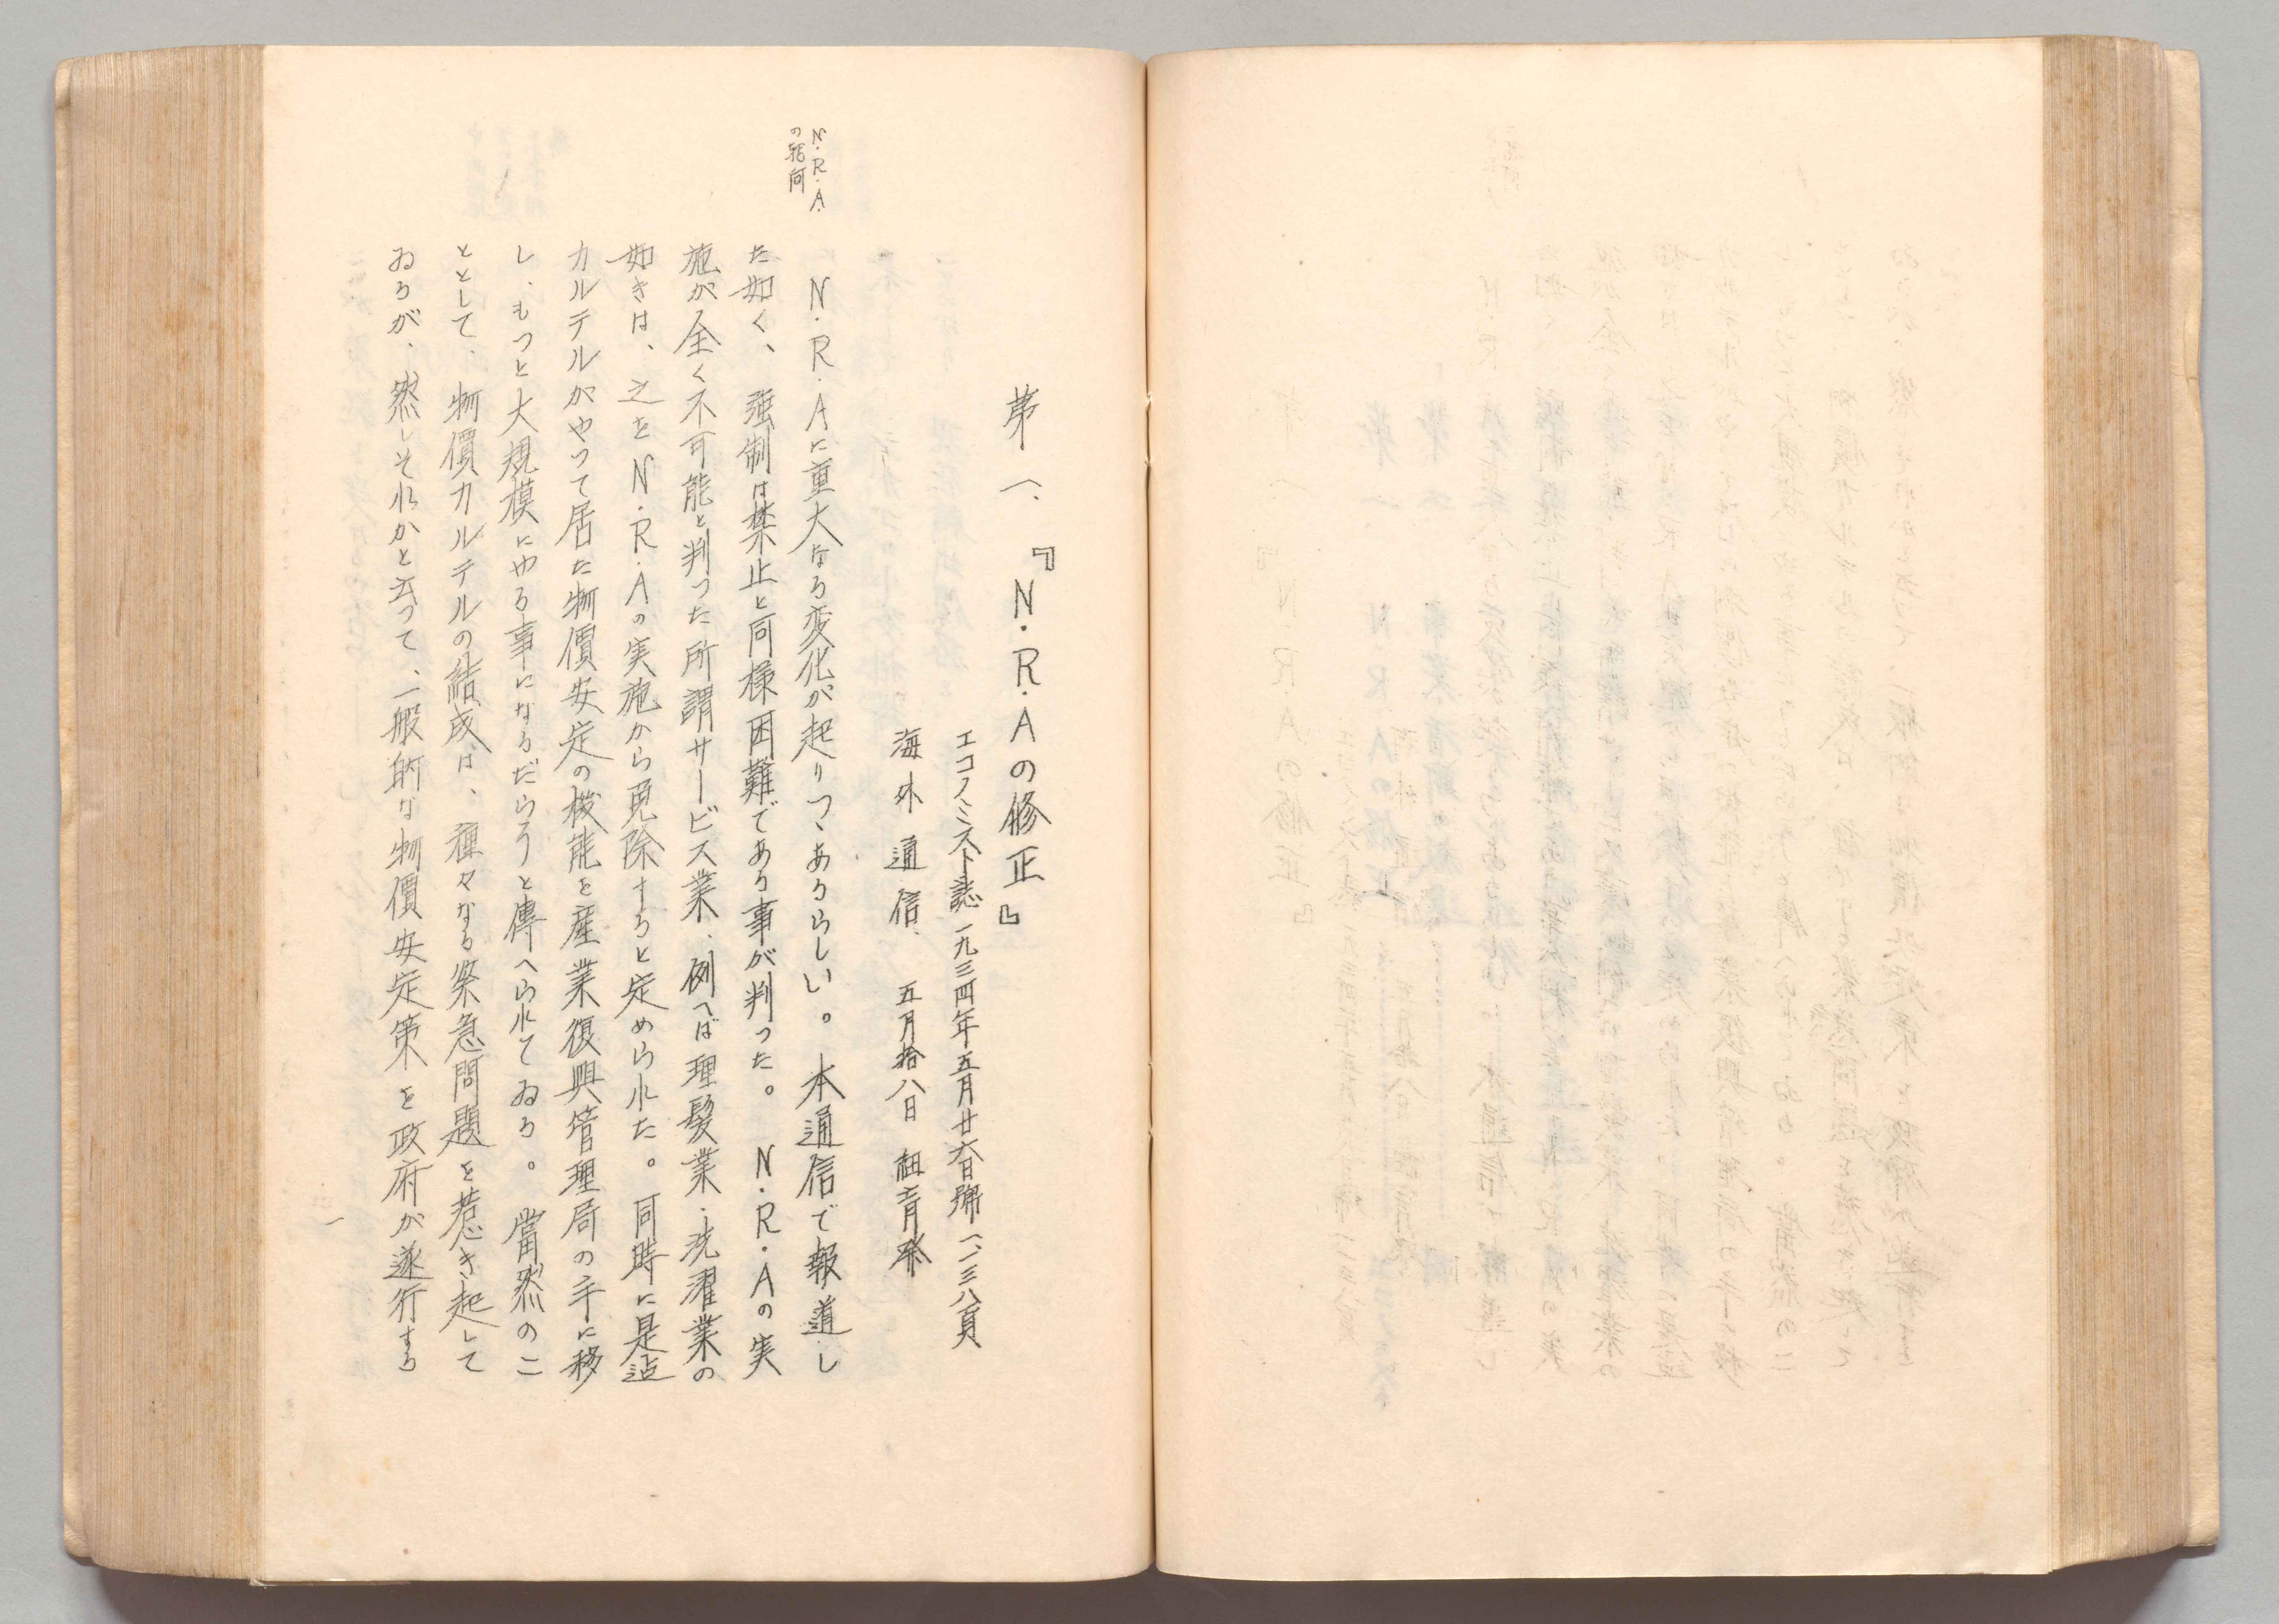 第一、『N.R.Aの修正』
エコノミスト誌一九三四年五月廿六日号一、一三八頁
海外通信、五月拾八日 紐育発
N.R.A.
の転向
N.R.Aに重大なる変化が起りつゝあるらしい。本通信で報道し
た如く、強制は禁止と同様困難である事が判つた。N.R.Aの実
施が全く不可能と判つた所謂サービス業、例へば理髪業、洗濯業の
如きは、之をN.R.Aの実施から免除すると定められた。同時に是迄
カルテルがやつて居た物價安定の機能を産業復興管理局の手に移
し、もつと大規模にやる事になるだらうと傳へられてゐる。當然のこ
ととして、物價カルテルの結成は、種々なる緊急問題を惹き起して
ゐるが、然しそれかと云つて、一般的な物價安定策を政府が遂行する
一